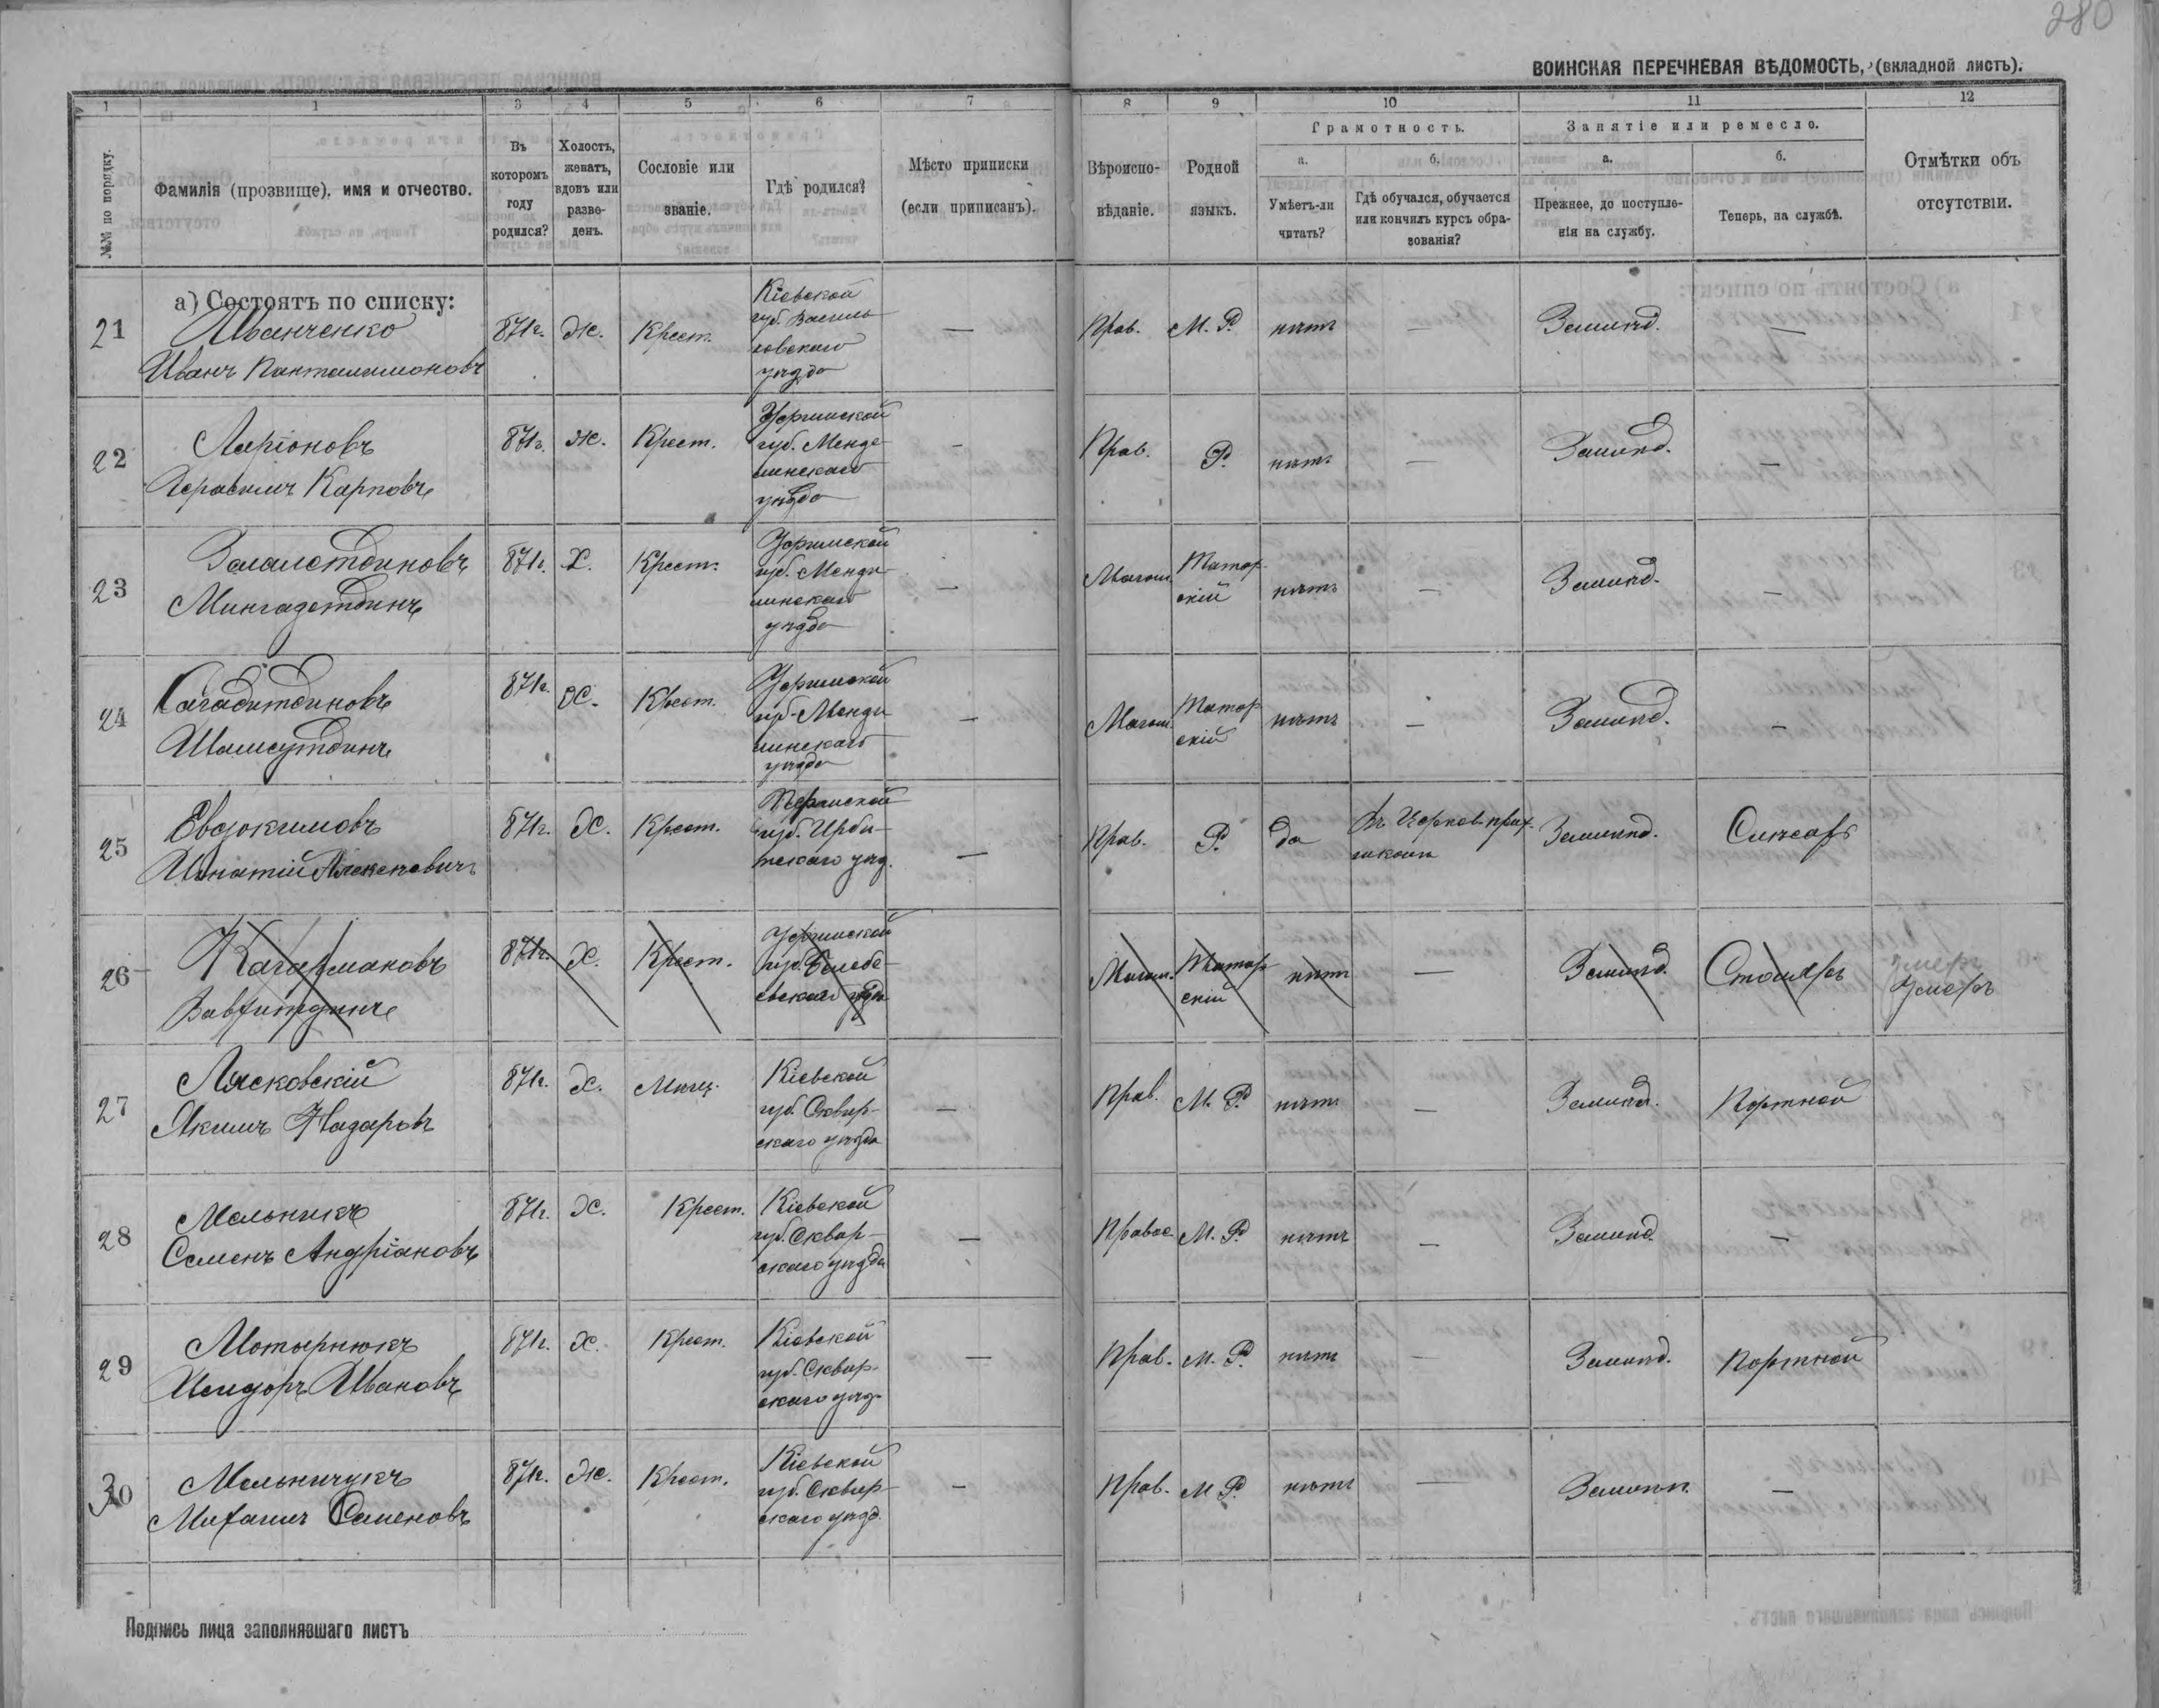 280
ВОИНСКАЯ ПЕРЕЧНЕВАЯ ВѢДОМОСТЬ, (вкладной листъ).
1 1 3 4 5 6 7 8 9 10 11 12
№№ по порядку.
Фамилія (прозвище), имя и отчество.
Въ которомъ году родился?
Холостъ, женатъ, вдовъ или разве-денъ.
Сословіе или званіе.
Гдѣ родился?
Мѣсто приписки (если приписанъ).
Вѣроиспо-вѣданіе.
Родной языкъ.
Грамотность.
а.
Умѣетъ-ли читать?
б.
Гдѣ обучался, обучается или кончилъ курсъ обра-зованія?
Занятіе или ремесло.
а.
Прежнее, до поступле-нія на службу.
б.
Теперь, на службѣ.
Отмѣтки объ отсутствіи.
а) Состоятъ по списку:
21 Иванченко Иванъ Панталимоновъ 871г. Ж. Крест. Кіевской губ. Василь-ковскаго уѣзда — Прав. М. Р. нѣтъ — Землед. —
22 Ларіоновъ Герасимъ Карповъ 871г. Ж. Крест. Уфимской губ. Менде-линскаго уѣзда — Прав. Р. нѣтъ — Землед. —
23 Залалетдиновъ Мингазетдинъ 871г. Х. Крест. Уфимской губ. Менди-линскаго уѣзда — Магом. Татар-скій нѣтъ — Землед. —
24 Сагадитдиновъ Шамсутдинъ 871г. Ж. Крест. Уфимской губ. Менди-линскаго уѣзда — Магом. Татар-скій нѣтъ — Землед. —
25 Евдокимовъ Игнатій Алексѣевичъ 871г. Ж. Крест. Пермской губ. Ирби-тскаго уѣзд. — Прав. Р. да Въ Церков-прих. школѣ Землед. Слесарь
26 Кагармановъ 871г. Х. Крест. Уфимской губ. Белебе-евскаго уѣзда Магом. Татар-скій нѣтъ — Землед. Столяръ Умеръ Умеръ
27 Лясковскій Якимъ Назаровъ 871г. Х. Мѣщ. Кіевской губ. Сквир-скаго уѣзда — Прав. М. Р. нѣтъ — Землед. Портной
28 Мельникъ Семенъ Андріановъ 871г. Ж. Крест. Кіевской губ. Сквир-скаго уѣзда — Правос. М. Р. нѣтъ — Землед. —
29 Мотырнюкъ Исидоръ Ивановъ 871г. Х. Крест. Кіевской губ. Сквир-скаго уѣзд. — Прав. М. Р. нѣтъ — Землед. Портной
30 Мельничукъ Михаилъ Семеновъ 871г. Ж. Крест. Кіевской губ. Сквир-скаго уѣзд. — Прав. М Р. нѣтъ — Землед. —
Подпись лица заполнявшаго листъ